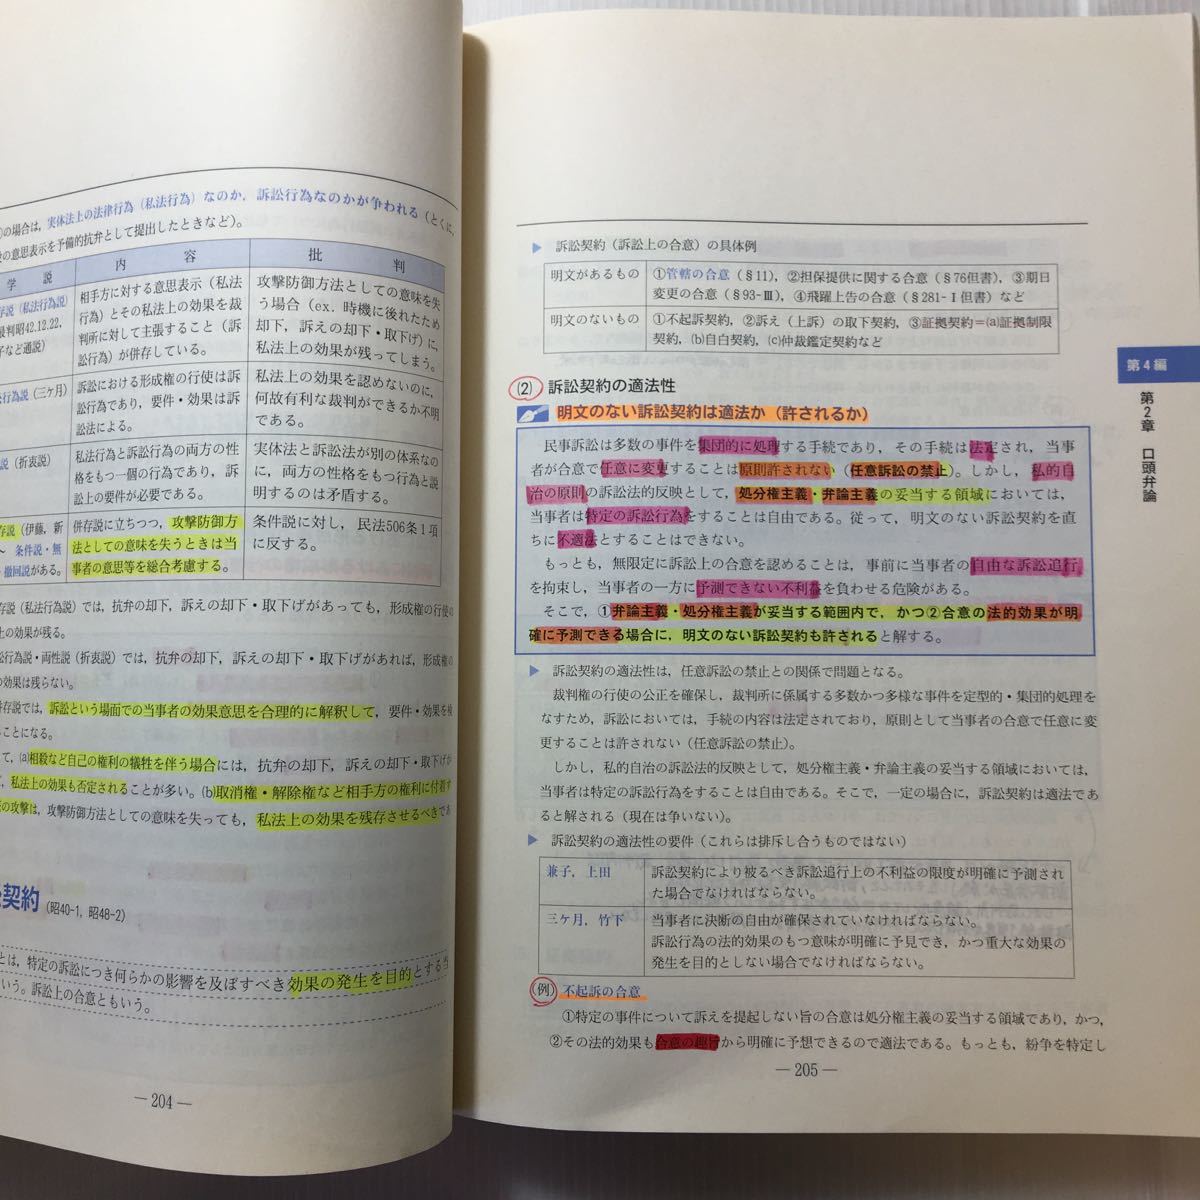 の場合は，実体法上の法律行為（私法行為）なのか，訴訟行為なのかが争われる（とくに，
の意思表示を予備的抗弁として提出したときなど）。
学　説
内　容
批　判
存説（私法行為説）
最判昭42.12.22,
子など通説）
相手方に対する意思表示（私法
行為）とその私法上の効果を裁
判所に対して主張すること（訴
訟行為）が併存している。
攻撃防御方法としての意味を失
う場合（ex．時機に後れたため
却下，訴えの却下・取下げ）に，
私法上の効果が残ってしまう。
行為説（三ケ月）
訴訟における形成権の行使は訴
訟行為であり，要件・効果は訴
訟法による。
私法上の効果を認めないのに，
何故有利な裁判ができるか不明
である。
説（折衷説）
私法行為と訴訟行為の両方の性
格をもつ一個の行為であり，訴
訟上の要件が必要である。
実体法と訴訟法が別の体系なの
に，両方の性格をもつ行為と説
明するのは矛盾する。
存説（伊藤，新
～　条件説・無
・撤回説がある。
併存説に立ちつつ，攻撃防御方
法としての意味を失うときは当
事者の意思等を総合考慮する。
条件説に対し，民法506条1項
に反する。
存説（私法行為説）では，抗弁の却下，訴えの却下・取下げがあっても，形成権の行使の
上の効果が残る。
行為説・両性説（折衷説）では，抗弁の却下，訴えの却下・取下げがあれば，形成権の
の効果は残らない。
併存説では，訴訟という場面での当事者の効果意思を合理的に解釈して，要件・効果を検
ことになる。
て，(a)相殺など自己の権利の犠牲を伴う場合には，抗弁の却下，訴えの却下・取下げが
，私法上の効果も否定されることが多い。(b)取消権・解除権など相手方の権利に付着す
の攻撃は，攻撃防御方法としての意味を失っても，私法上の効果を残存させるべきであ
契約（昭40-1，昭48-2）
とは，特定の訴訟につき何らかの影響を及ぼすべき効果の発生を目的とする当
いう。訴訟上の合意ともいう。
― 204 ―
▶ 訴訟契約（訴訟上の合意）の具体例
明文があるもの
①管轄の合意（§11），②担保提供に関する合意（§76但書），③期日
変更の合意（§93-Ⅲ），④飛躍上告の合意（§281-Ⅰ但書）など
明文のないもの
①不起訴契約，②訴え（上訴）の取下契約，③証拠契約＝(a)証拠制限
契約，(b)自白契約，(c)仲裁鑑定契約など
(2) 訴訟契約の適法性
明文のない訴訟契約は適法か（許されるか）
民事訴訟は多数の事件を集団的に処理する手続であり，その手続は法定され，当事
者が合意で任意に変更することは原則許されない（任意訴訟の禁止）。しかし，私的自
治の原則の訴訟法的反映として，処分権主義・弁論主義の妥当する領域においては，
当事者は特定の訴訟行為をすることは自由である。従って，明文のない訴訟契約を直
ちに不適法とすることはできない。
もっとも，無限定に訴訟上の合意を認めることは，事前に当事者の自由な訴訟追行
を拘束し，当事者の一方に予測できない不利益を負わせる危険がある。
そこで，①弁論主義・処分権主義が妥当する範囲内で，かつ②合意の法的効果が明
確に予測できる場合に，明文のない訴訟契約も許されると解する。
▶ 訴訟契約の適法性は，任意訴訟の禁止との関係で問題となる。
裁判権の行使の公正を確保し，裁判所に係属する多数かつ多様な事件を定型的・集団的処理を
なすため，訴訟においては，手続の内容は法定されており，原則として当事者の合意で任意に変
更することは許されない（任意訴訟の禁止）。
しかし，私的自治の訴訟法的反映として，処分権主義・弁論主義の妥当する領域においては，
当事者は特定の訴訟行為をすることは自由である。そこで，一定の場合に，訴訟契約は適法であ
ると解される（現在は争いない）。
▶ 訴訟契約の適法性の要件（これらは排斥し合うものではない）
兼子，上田
訴訟契約により被るべき訴訟追行上の不利益の限度が明確に予測され
た場合でなければならない。
三ケ月，竹下
当事者に決断の自由が確保されていなければならない。
訴訟行為の法的効果のもつ意味が明確に予見でき，かつ重大な効果の
発生を目的としない場合でなければならない。
(例) 不起訴の合意
①特定の事件について訴えを提起しない旨の合意は処分権主義の妥当する領域であり，かつ，
②その法的効果も合意の趣旨から明確に予想できるので適法である。もっとも，紛争を特定し
― 205 ―
第4編
第2章　口頭弁論